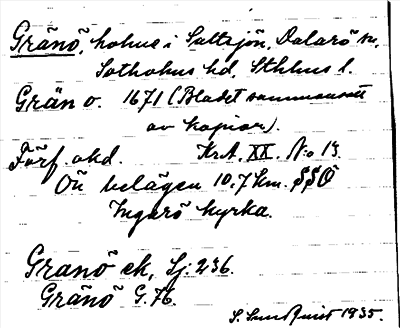 Gränö, holme i Saltsjön, Dalarö sn,
Sotholms hd, Sthlms l.
Grän o. 1671 (Bladet sammansatt
av kopior).
Förf. okd. KrA. XX. N:o 13.
Ön belägen 10.7 km. SSO
Ingarö kyrka.
Granö ek, Sj: 236.
Gränö G. 76.
S. Sundquist 1935.